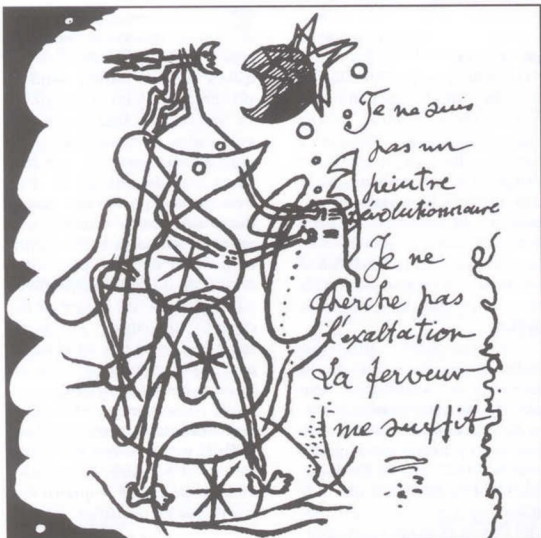 Je ne suis
pas un
peintre
révolutionnaire
Je ne
cherche pas
l'exaltation
La ferveur
me suffit